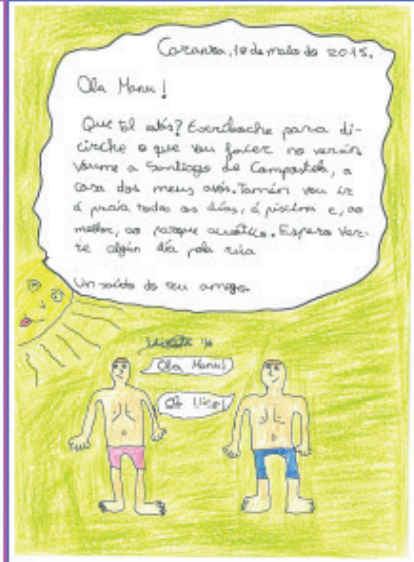 Caranza, 18 de maio do 2015.
Ola Manu!
Que tal estás? Escríboche para di-
cirche o que vou facer no verán
Voume a Santiago de Compostela, a
casa dos meus avós. Tamén vou ir
á praia todos os días, á piscina e, ao
mellor, ao parque acuático. Espero ver-
te algún día pola rúa
Un saúdo do teu amigo
Ola Manu!
Ola Vice!